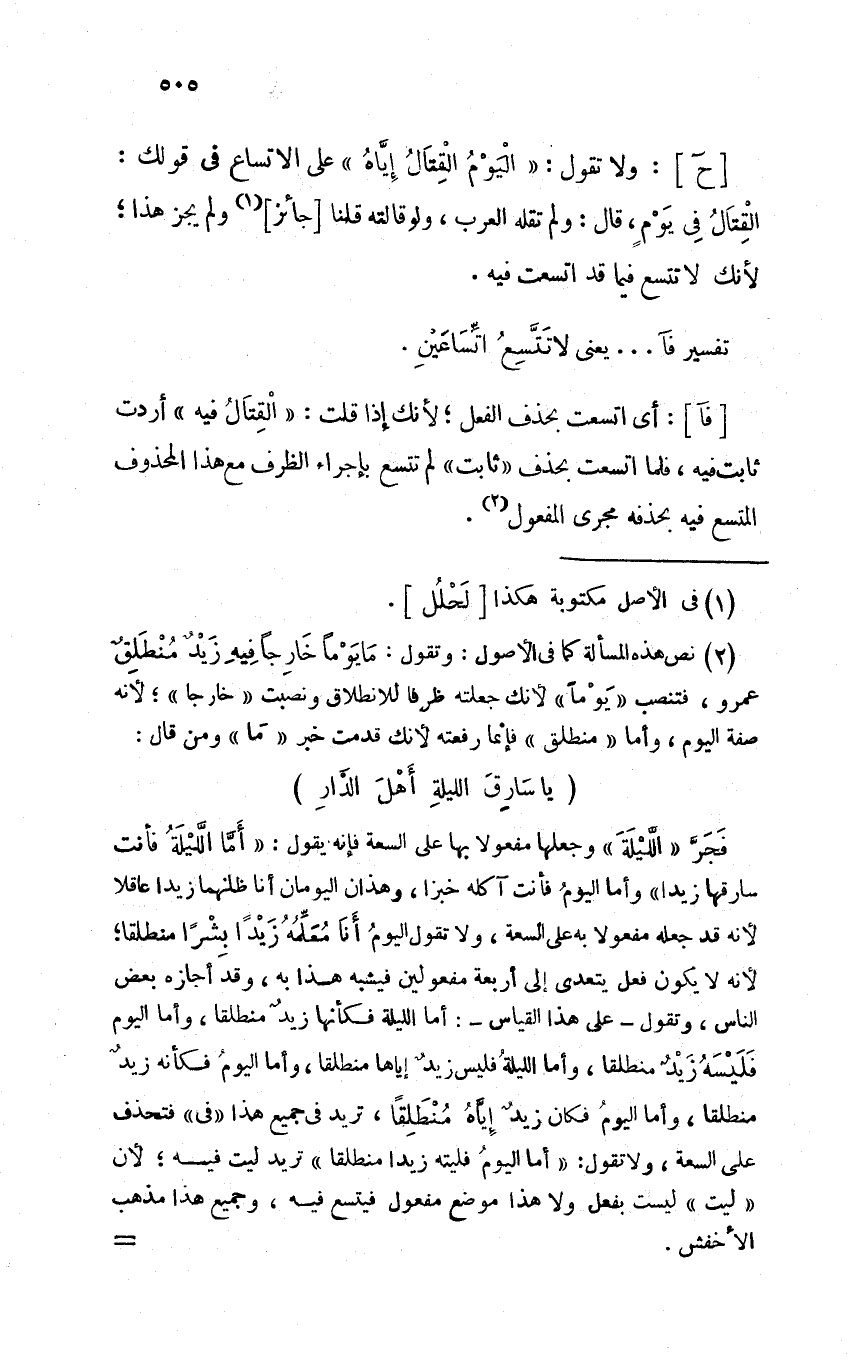 ٥٠٥
[حَ] : ولا تقول : « الْيَوْمُ الْقِتَالُ إِيَّاهُ » على الاتساع فى قولك :
الْقِتَالُ فِى يَوْمٍ، قال : ولم تقله العرب ، ولو قالته قلنا [جائز](١) ولم يجز هذا ؛
لأنك لا تتسع فيما قد اتسعت فيه .
تفسير فَآ ... يعنى لا تَتَّسِعُ اتِّسَاعَيْنِ .
[فَآ] : أى اتسعت بحذف الفعل ؛ لأنك إذا قلت : « الْقِتَالُ فيه » أردت
ثابت فيه ، فلما اتسعت بحذف «ثابت» لم تتسع بإجراء الظرف مع هذا المحذوف
المتسع فيه بحذفه مجرى المفعول(٢) .
(١) فى الأصل مكتوبة هكذا [ لَحْلُل ] .
(٢) نص هذه المسألة كما فى الأصول : وتقول : مَايَوْماً خَارِجاً فِيهِ زَيْدٌ مُنْطَلِقٌ
عمرو ، فتنصب «يَوْماً» لأنك جعلته ظرفا للانطلاق ونصبت « خارجا » ؛ لأنه
صفة اليوم ، وأما « منطلق » فإنما رفعته لأنك قدمت خبر « مَا » ومن قال :
( يا سَارِقَ الليلةِ أَهْلَ الدَّارِ )
فَجَرَّ « اللَّيْلَةَ » وجعلها مفعولا بها على السعة فإنه يقول : « أَمَّا اللَّيْلَةُ فأنت
سارقها زيدا» وأما اليومُ فأنت آكله خبزا ، وهذان اليومان أنا ظانهما زيدا عاقلا
لأنه قد جعله مفعولا به على السعة ، ولا تقول اليومُ أَنَا مُعَلِّمُهُ زَيْدًا بِشْرًا منطلقا؛
لأنه لا يكون فعل يتعدى إلى أربعة مفعولين فيشبه هـذا به ، وقد أجازه بعض
الناس ، وتقول - على هذا القياس - : أما الليلة فـكأنها زيدٌ منطلقا ، وأما اليوم
فَلَيْسَهُ زَيْدٌ منطلقا ، وأما الليلةُ فليس زيدٌ إياها منطلقا ، وأما اليومُ فـكأنه زيدٌ
منطلقا ، وأما اليومُ فكان زيدٌ إِيَّاهُ مُنْطَلِقًا ، تريد فى جميع هذا «فى» فتحذف
على السعة ، ولا تقول: « أما اليومُ فليته زيدا منطلقا » تريد ليت فيـه ؛ لأن
« ليت » ليست بفعل ولا هذا موضع مفعول فيتسع فيـه ، وجميع هذا مذهب
الأخفش . =